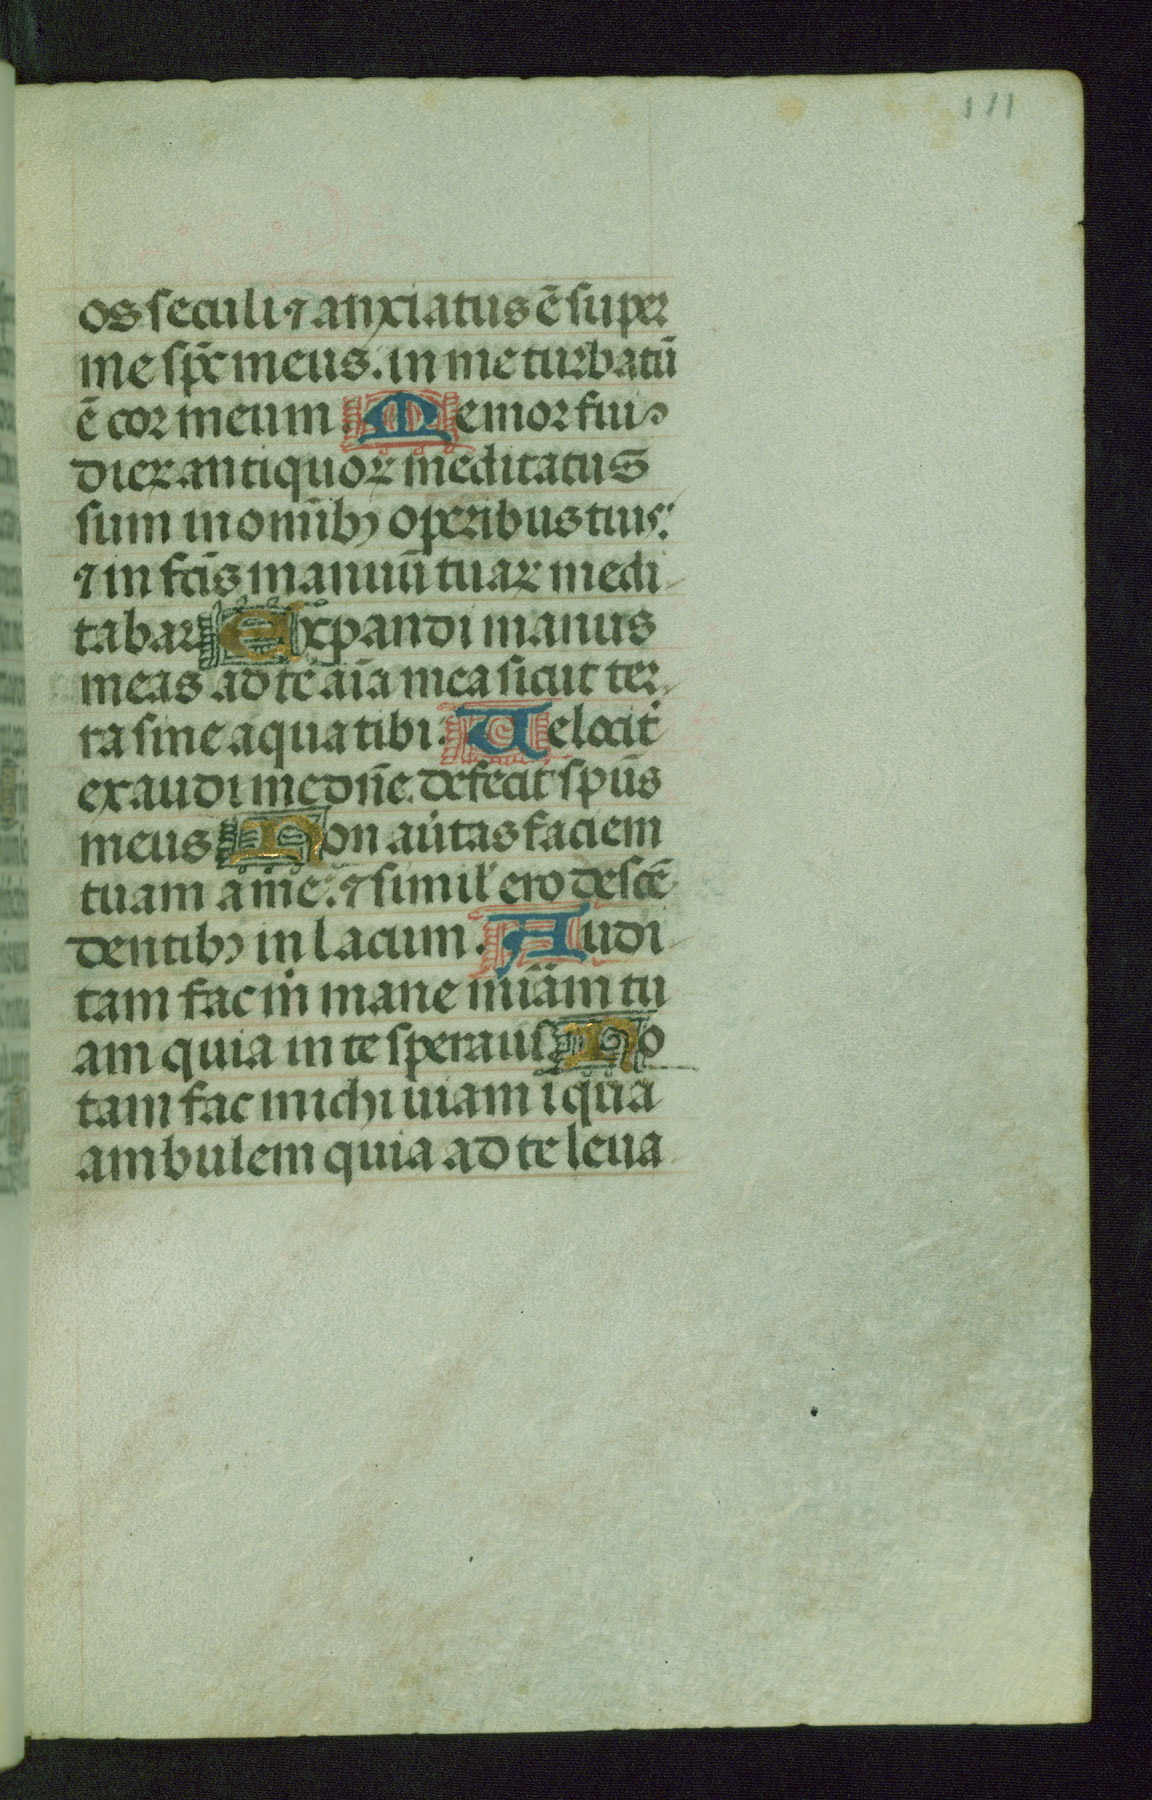 171
os seculi ⁊ anxiatus ē super
me sp̄c meus. in me turbatū
ē cor meum. Memor fui
dieꝝ antiquoꝝ meditatus
sum in omībꝫ operibus tuis:
⁊ in fc̄is manuū tuaꝝ medi
tabar. Expandi manus
meas ad te aīa mea sicut ter
ra sine aqua tibi. Uelocit̄
exaudi me dn̄e. defecit spūs
meus. Non aūtas faciem
tuam a me: ⁊ simil̄ ero descē
dentibꝫ in lacum. Audi
tam fac m̄ mane mīam tu
am quia in te speraui. No
tam fac michi uiam ī qua
ambulem quia ad te leua